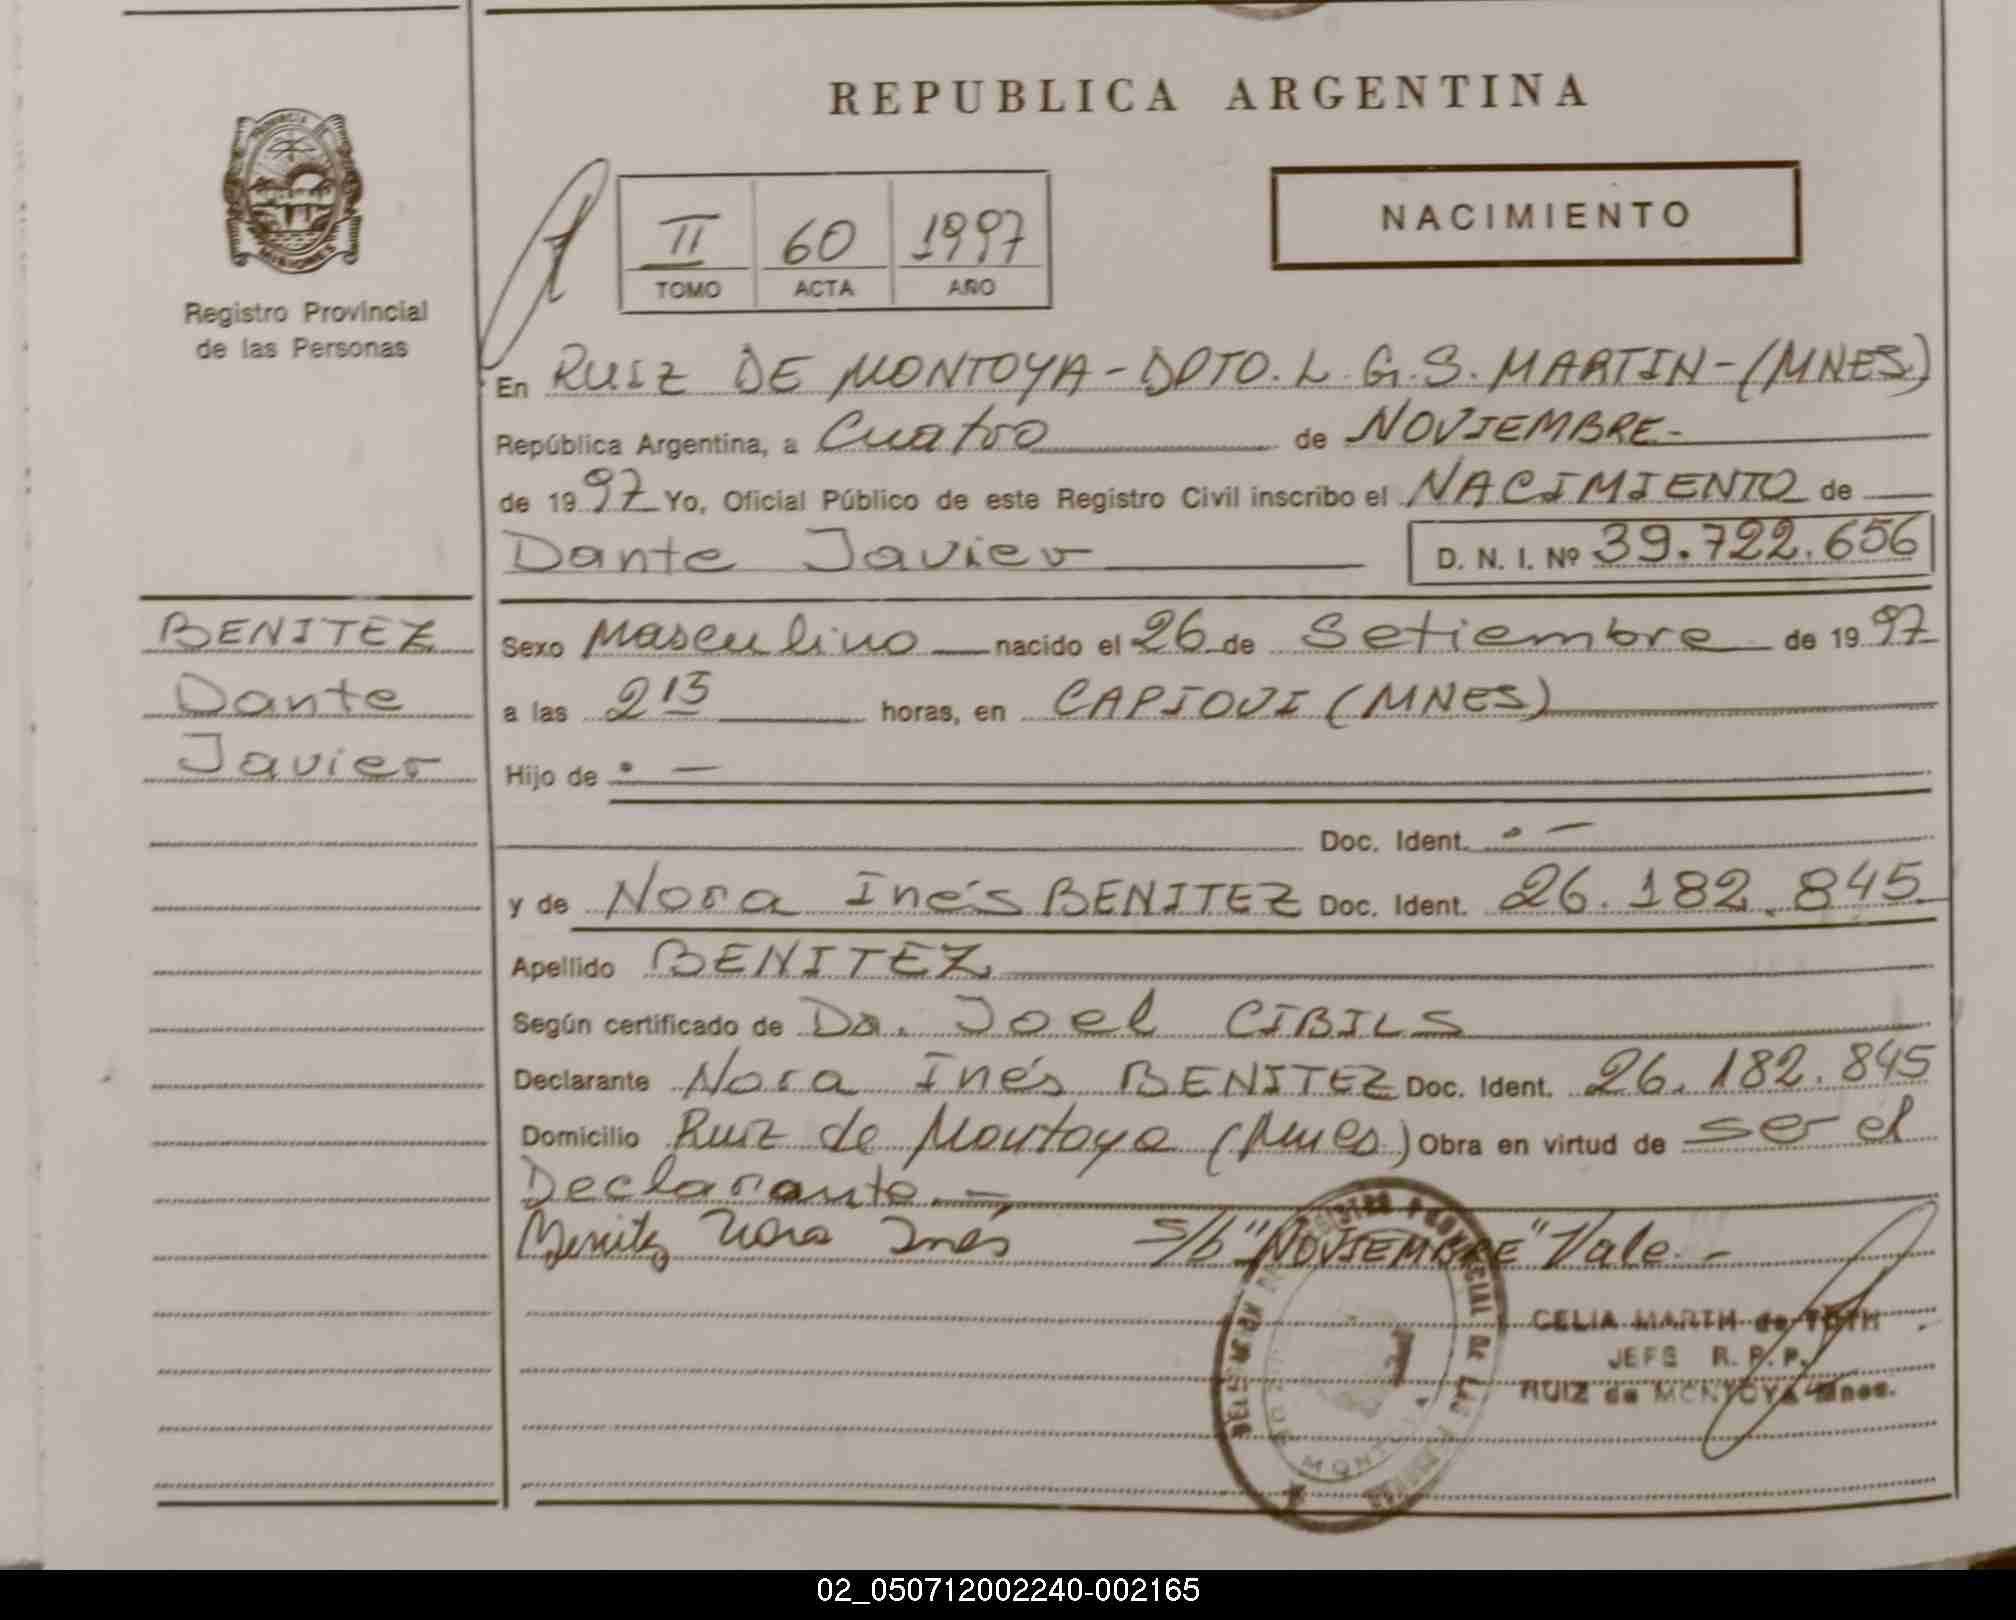 REPUBLICA ARGENTINA
NACIMIENTO
II 60 1997
TOMO ACTA AÑO
PROVINCIA DE
MISIONES
Registro Provincial
de las Personas
En RUIZ DE MONTOYA - DPTO. L. G. S. MARTIN - (MNES)
República Argentina, a Cuatro de NOVIEMBRE.-
de 1997 Yo, Oficial Público de este Registro Civil inscribo el NACIMIENTO de
Dante Javier D. N. I. Nº 39.722.656
BENITEZ
Dante
Javier
Sexo Masculino nacido el 26 de Setiembre de 1997
a las 2 15 horas, en CAPIOVI (MNES)
Hijo de . —
Doc. Ident. . —
y de Nora Inés BENITEZ Doc. Ident. 26.182.845.
Apellido BENITEZ
Según certificado de Dr. Joel CIBILS
Declarante Nora Inés BENITEZ Doc. Ident. 26.182.845
Domicilio Ruiz de Montoya (Mnes.) Obra en virtud de ser el
Declarante.—
Benitez Nora Inés S/b "NOVIEMBRE" Vale.-
CELIA MARTH de TOTH
JEFE R. P. P.
RUIZ de MONTOYA Mnes.
02_050712002240-002165